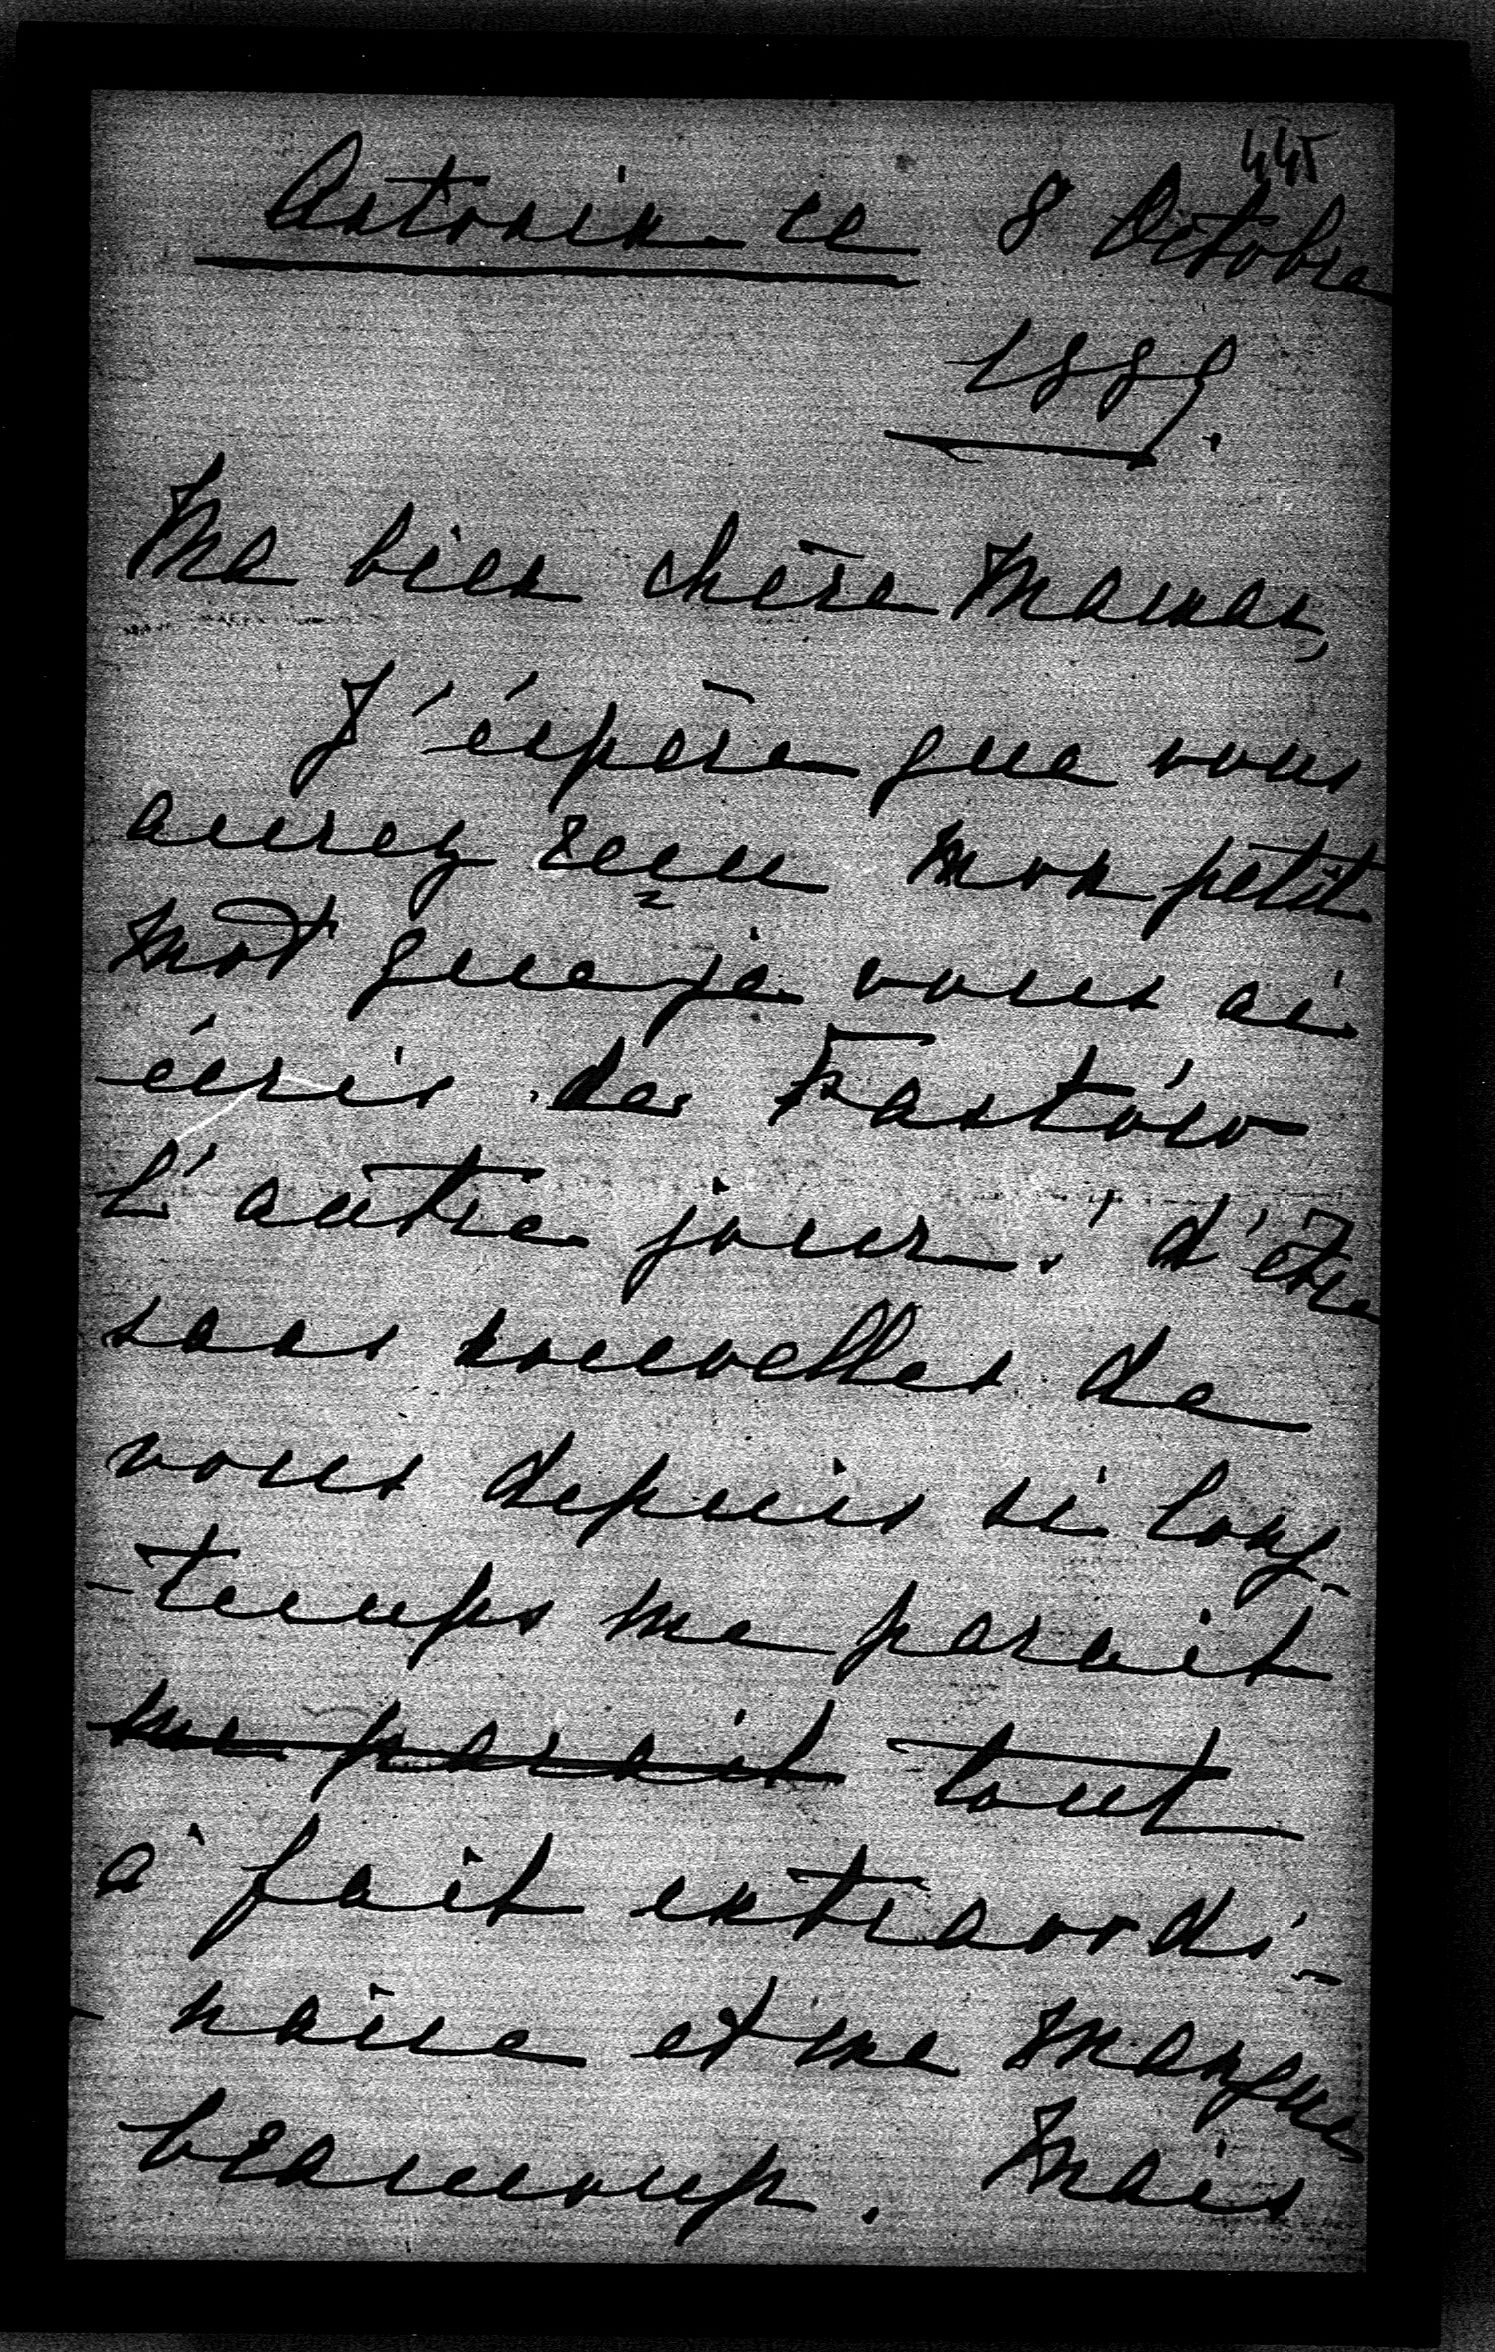 445
Antonin ce 8 Octobre
1889.
Ma bien chère Maman,
J'éspère que vous
aurez reçu mon petit
mot que je vous ai
écris de
l'autre jour. d'être
sans nouvelles de
vous depuis si long-
-temps me parait
me parait tout
à fait extraordi-
-naire et me manque
beaucoup. Mais